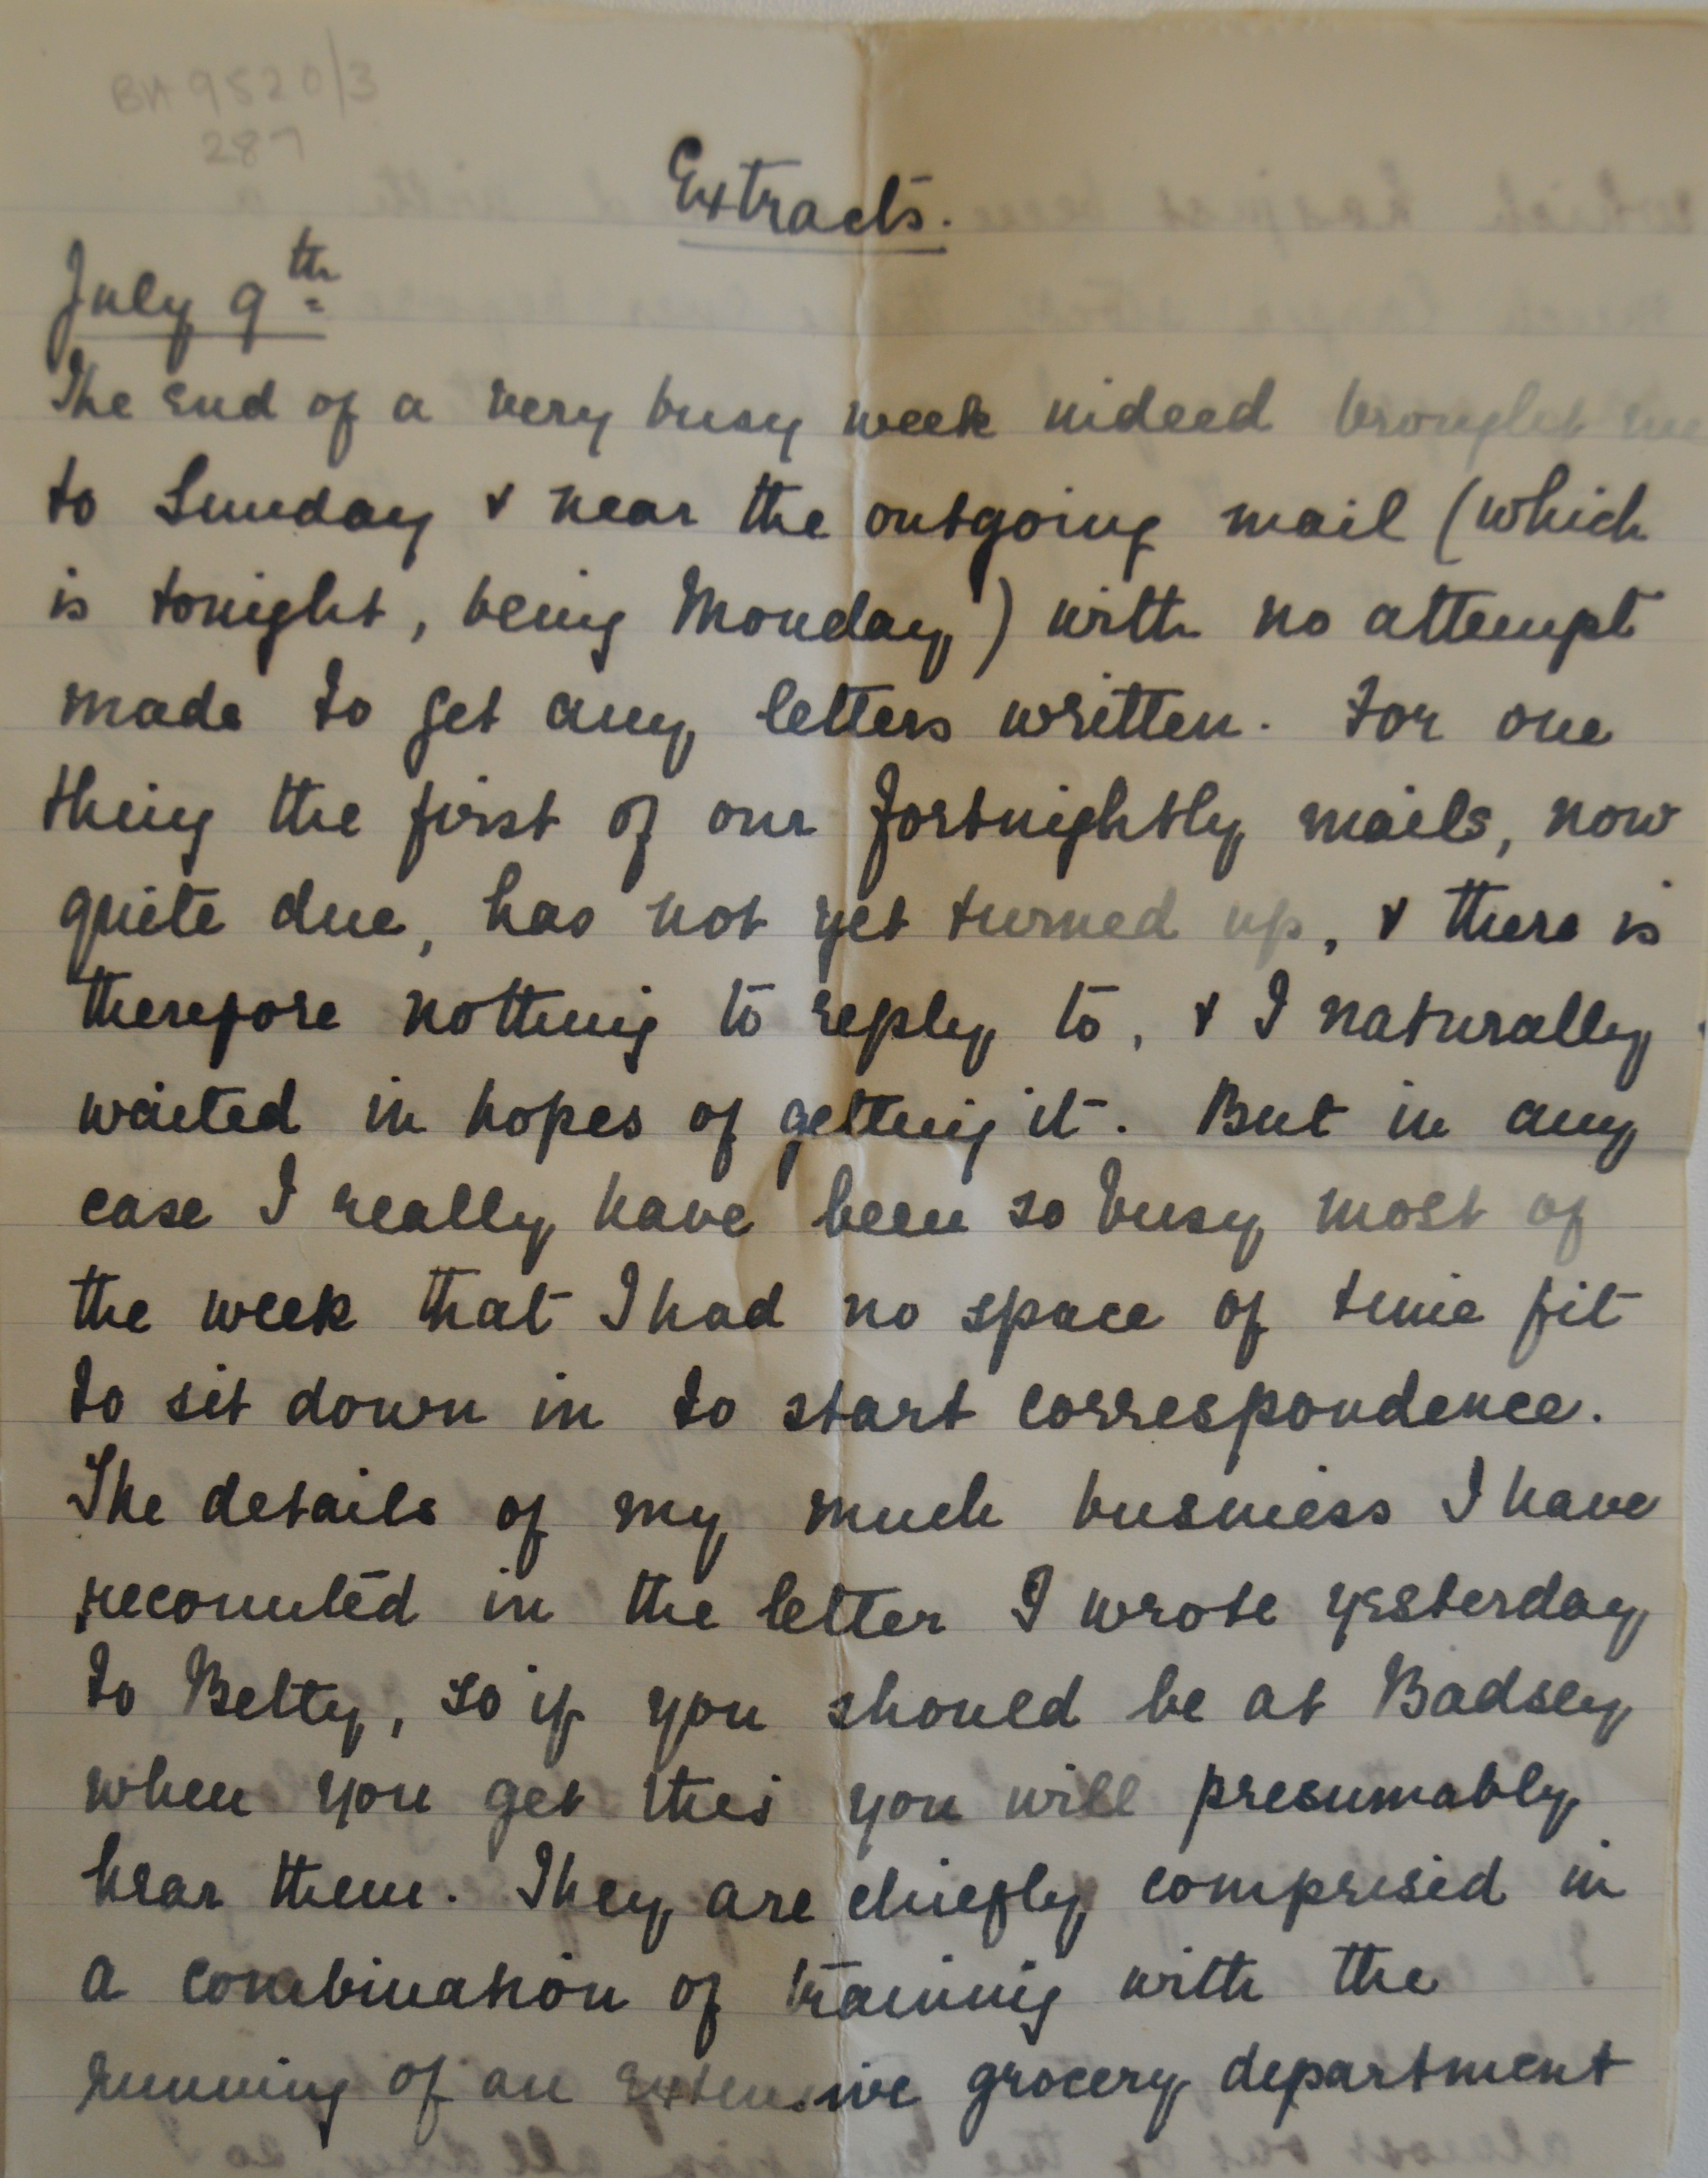 BA 9520/3
287
Extracts.
July 9th
The end of a very busy week indeed brought me
to Sunday & near the outgoing mail (which
is tonight, being Monday) with no attempt
made to get any letters written. For one
thing the first of our fortnightly mails, now
quite due, has not yet turned up, & there is
therefore nothing to reply to, & I naturally
waited in hopes of getting it. But in any
case I really have been so busy most of
the week that I had no space of time fit
to sit down in to start correspondence.
The details of my much business I have
recounted in the letter I wrote yesterday
to Betty, so if you should be at Badsey
when you get this you will presumably
hear them. They are chiefly comprised in
a combination of training with the
running of an extensive grocery department